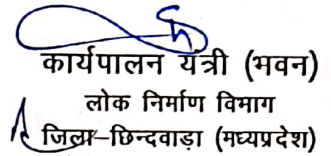 कार्यपालन यंत्री (भवन)
लोक निर्माण विभाग
जिला-छिन्दवाड़ा (मध्यप्रदेश)